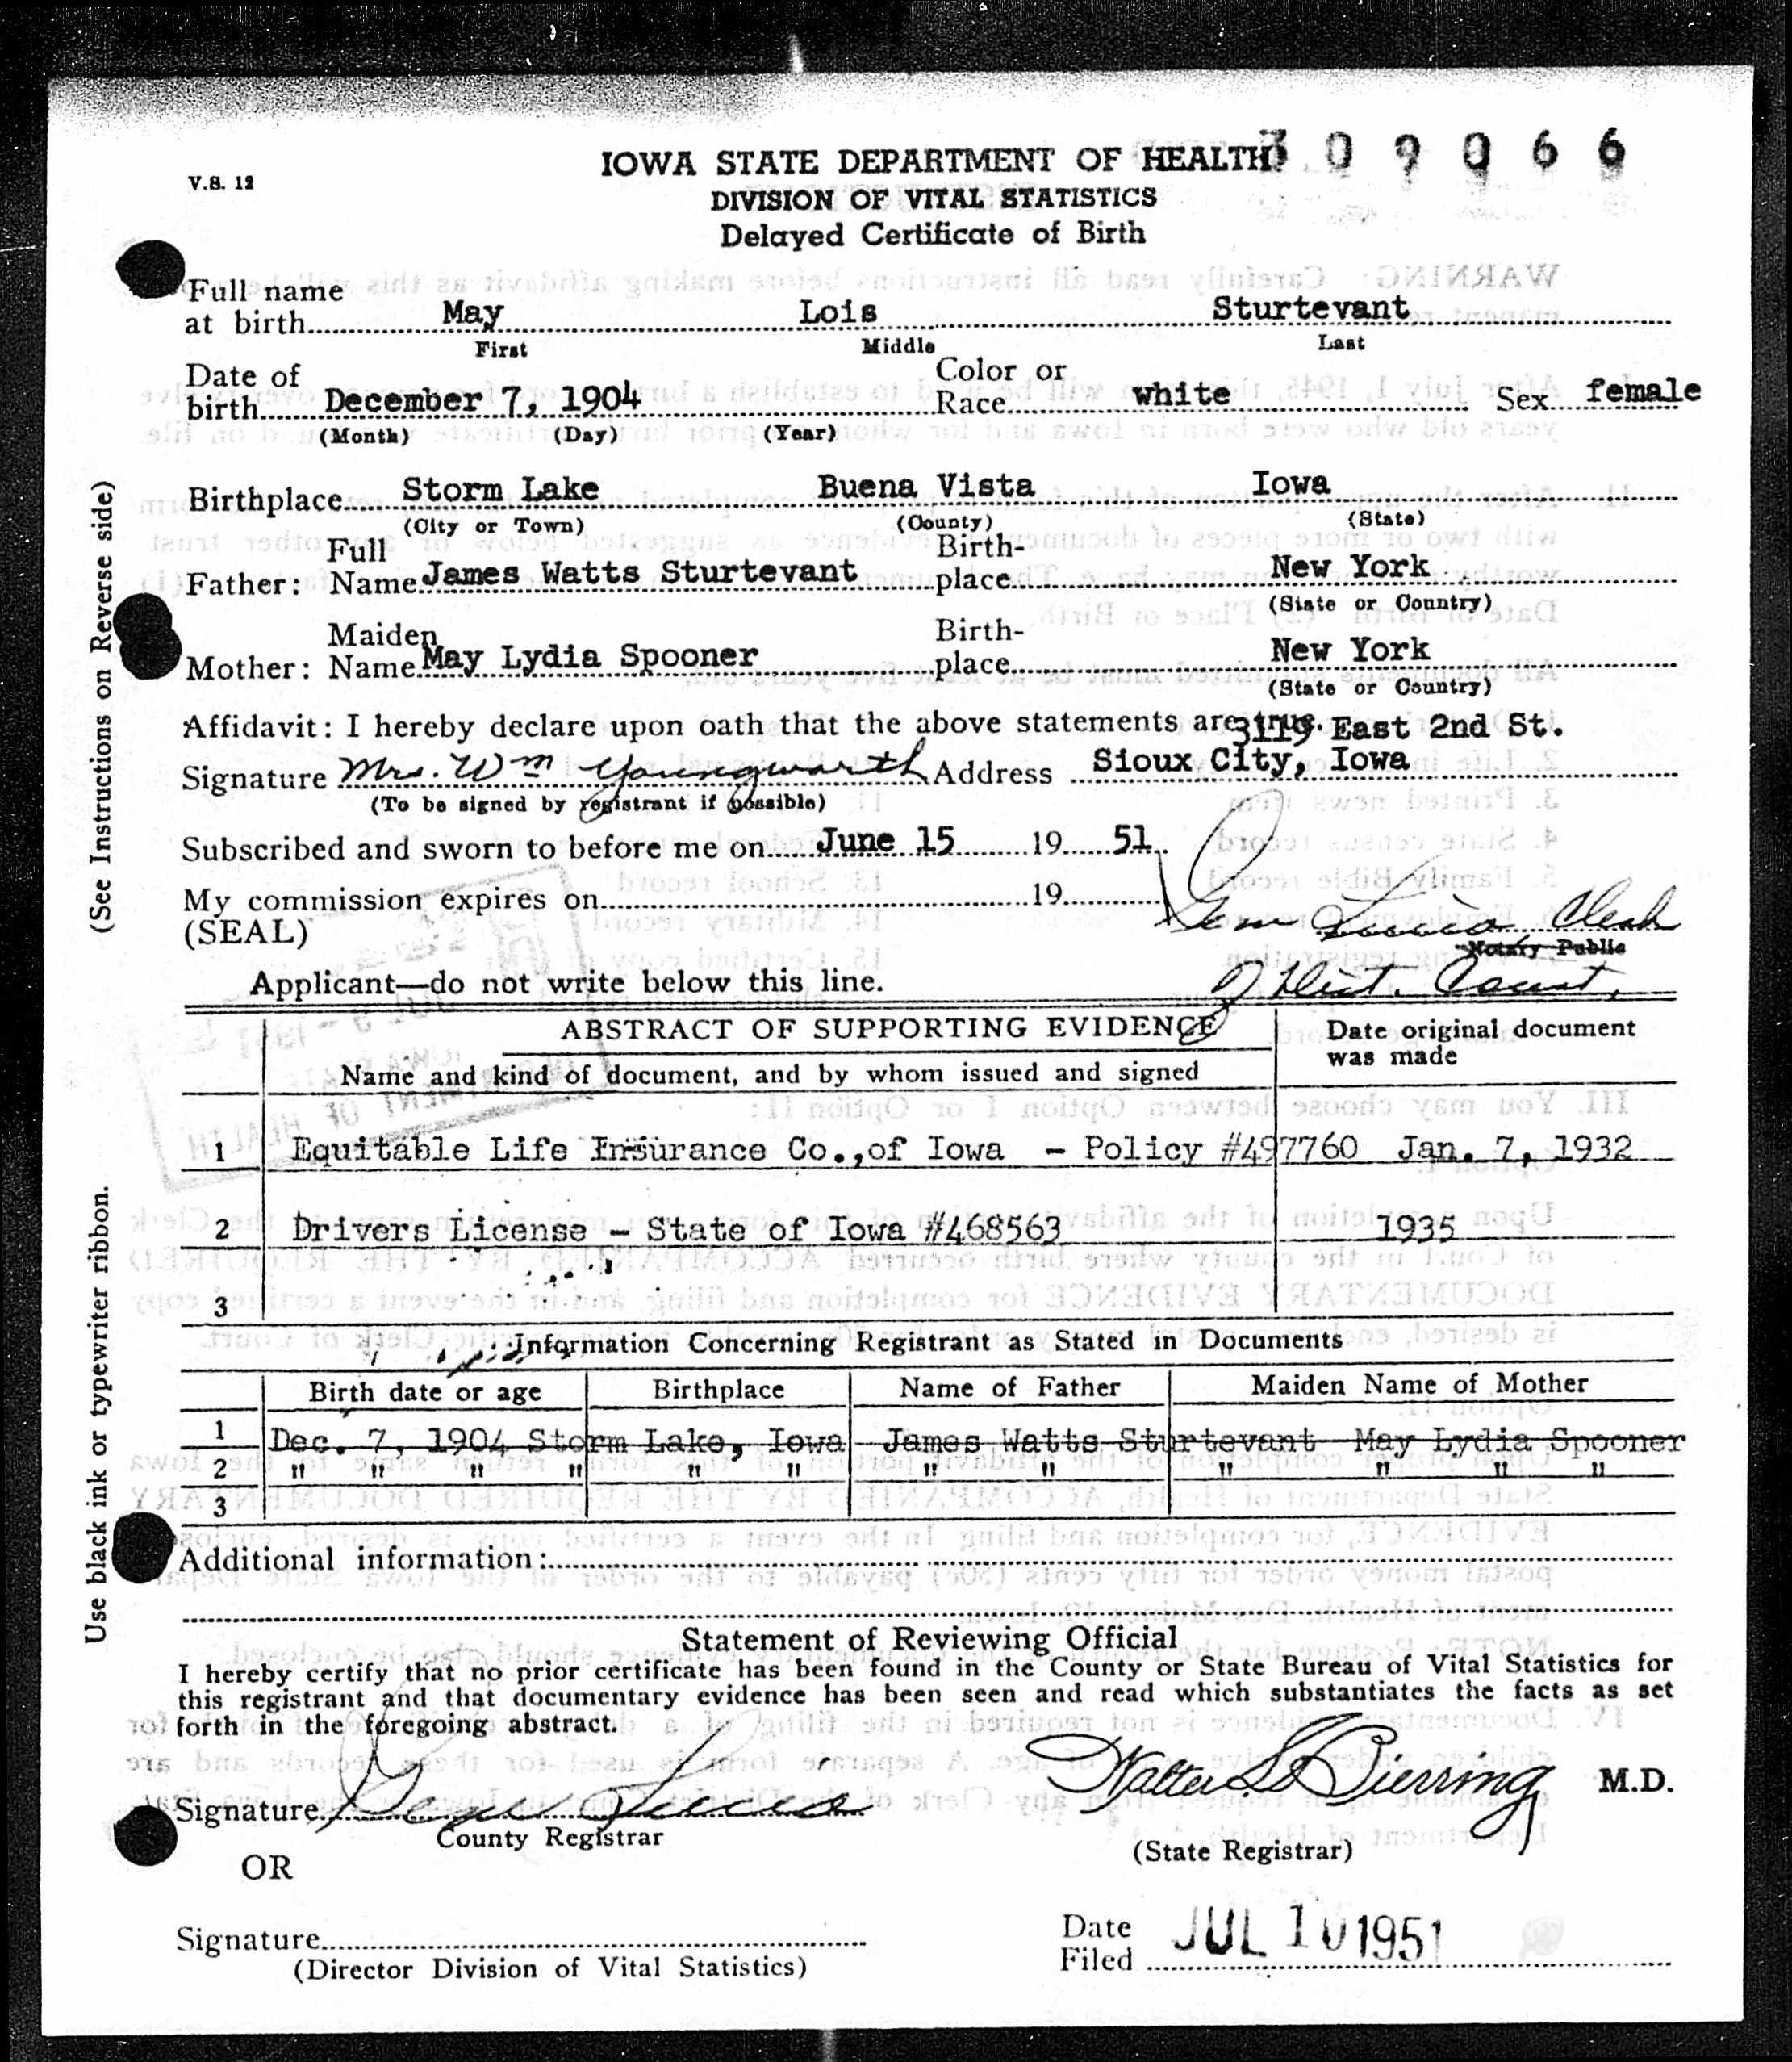 V.S. 12
IOWA STATE DEPARTMENT OF HEALTH
DIVISION OF VITAL STATISTICS
Delayed Certificate of Birth
Full name
at birth May Lois Sturtevant
First Middle Last
Date of birth December 7, 1904 Color or Race white Sex female
(Month) (Day) (Year)
Birthplace Storm Lake Buena Vista Iowa
(City or Town) (County) (State)
Father: Full Name James Watts Sturtevant Birthplace New York
(State or Country)
Mother: Maiden Name May Lydia Spooner Birthplace New York
(State or Country)
Affidavit: I hereby declare upon oath that the above statements are true. 3119 East 2nd St.
Signature Mrs. Wm Youngwarth Address Sioux City, Iowa
(To be signed by registrant if possible)
Subscribed and sworn to before me on June 15 19 51
My commission expires on 19 Clerk
(SEAL) Notary Public
Applicant—do not write below this line. Dist. Court,
ABSTRACT OF SUPPORTING EVIDENCE
Name and kind of document, and by whom issued and signed
Date original document
was made
1 Equitable Life Insurance Co.,of Iowa - Policy #497760 Jan. 7, 1932
2 Drivers License - State of Iowa #468563 1935
3
Information Concerning Registrant as Stated in Documents
Birth date or age Birthplace Name of Father Maiden Name of Mother
1 Dec. 7, 1904 Storm Lake, Iowa James Watts Sturtevant May Lydia Spooner
2 " " " " " " " " " " " "
3
Additional information:
Statement of Reviewing Official
I hereby certify that no prior certificate has been found in the County or State Bureau of Vital Statistics for
this registrant and that documentary evidence has been seen and read which substantiates the facts as set
forth in the foregoing abstract.
Signature Walter L. Bierring M.D.
County Registrar (State Registrar)
OR
Signature Date Filed JUL 10 1951
(Director Division of Vital Statistics)
(See Instructions on Reverse side)
Use black ink or typewriter ribbon.